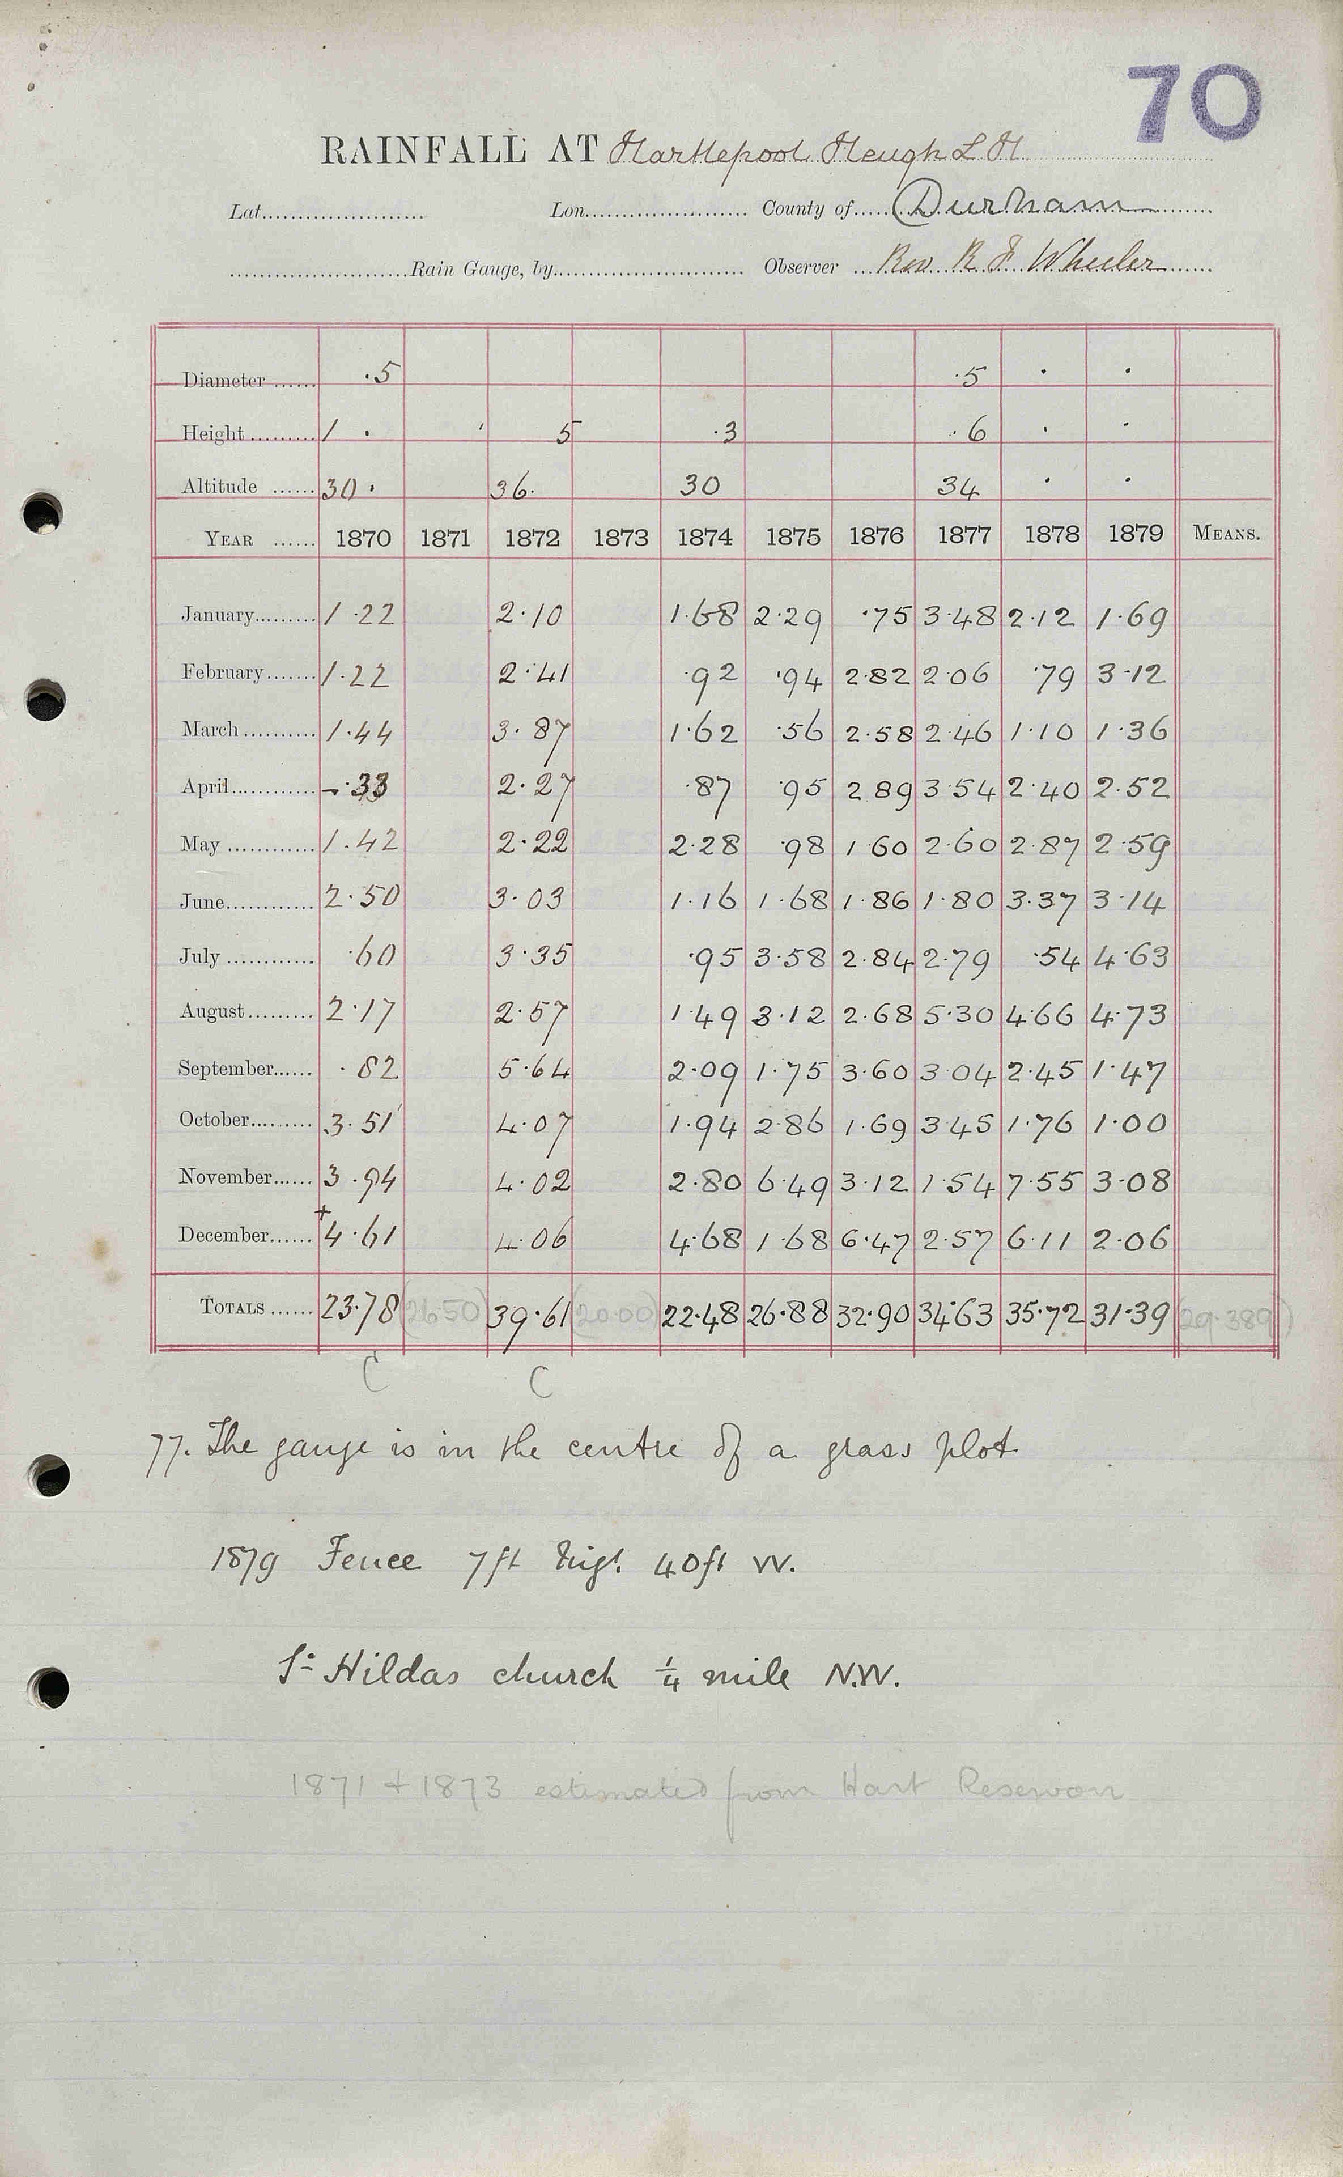 70
RAINFALL AT Hartlepool Heugh L H
Lat. Lon. County of Durham
Rain Gauge, by Observer Rev. R F Wheeler
Diameter ·5 ·5 · ·
Height 1 · 5 ·3 ·6 · ·
Altitude 30 · 36· 30 34 · ·
YEAR 1870 1871 1872 1873 1874 1875 1876 1877 1878 1879 MEANS.
January 1·22 2·10 1·68 2·29 ·75 3·48 2·12 1·69
February 1·22 2·41 ·92 ·94 2·82 2·06 ·79 3·12
March 1·44 3·87 1·62 ·56 2·58 2·46 1·10 1·36
April ·33 2·27 ·87 ·95 2·89 3·54 2·40 2·52
May 1·42 2·22 2·28 ·98 1·60 2·60 2·87 2·59
June 2·50 3·03 1·16 1·68 1·86 1·80 3·37 3·14
July ·60 3·35 ·95 3·58 2·84 2·79 ·54 4·63
August 2·17 2·57 1·49 3·12 2·68 5·30 4·66 4·73
September ·82 5·64 2·09 1·75 3·60 3·04 2·45 1·47
October 3·51 4·07 1·94 2·86 1·69 3·45 1·76 1·00
November 3·94 4·02 2·80 6·49 3·12 1·54 7·55 3·08
December +4·61 4·06 4·68 1·68 6·47 2·57 6·11 2·06
TOTALS 23·78 (26·50) 39·61 (20·00) 22·48 26·88 32·90 34·63 35·72 31·39 (29·389)
C C
77. The gauge is in the centre of a grass plot.
1879 Fence 7ft high 40ft W.
St Hildas church ¼ mile N.W.
1871 + 1873 estimated from Hart Reservoir